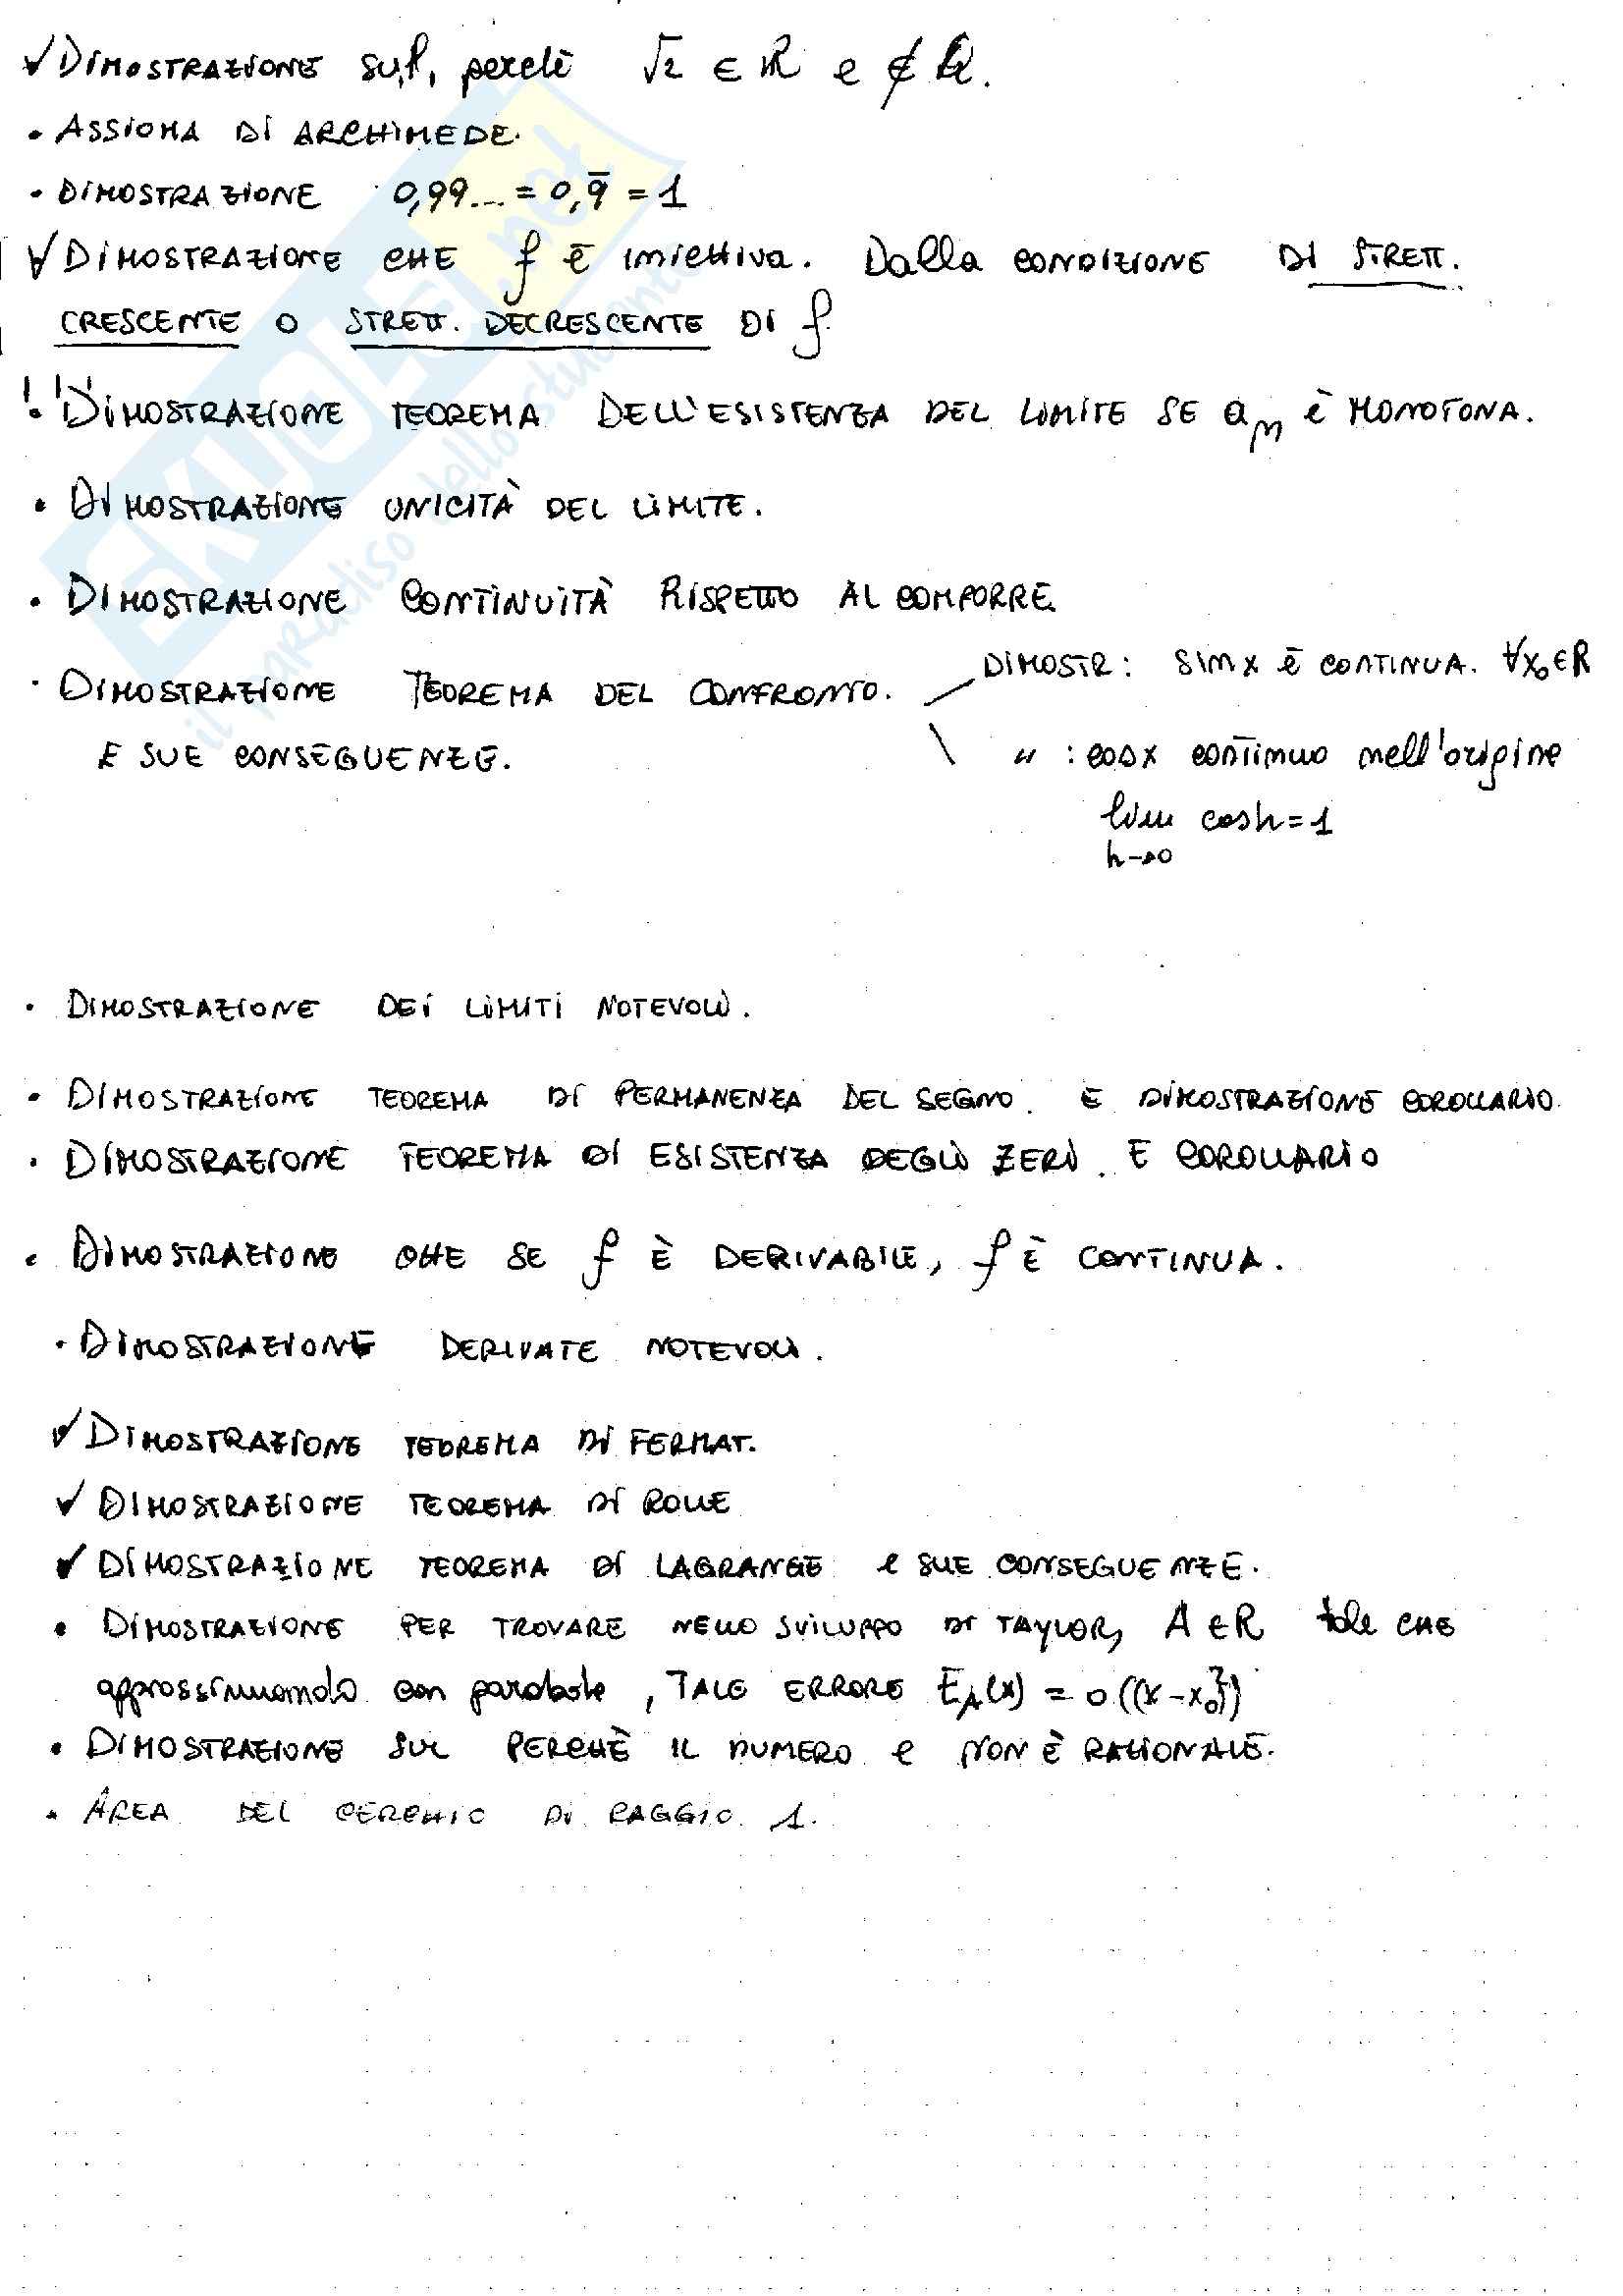 ✓ DIMOSTRAZIONE sul perchè √2 ∈ R e ∉ Q.
• ASSIOMA DI ARCHIMEDE.
• DIMOSTRAZIONE 0,99... = 0,9̅ = 1
✓ DIMOSTRAZIONE CHE f è iniettiva. Dalla CONDIZIONE DI STRETT.
CRESCENTE O STRETT. DECRESCENTE DI f
!!! • DIMOSTRAZIONE TEOREMA DELL'ESISTENZA DEL LIMITE SE an è MONOTONA.
• DIMOSTRAZIONE UNICITÀ DEL LIMITE.
• DIMOSTRAZIONE CONTINUITÀ RISPETTO AL COMPORRE
• DIMOSTRAZIONE TEOREMA DEL CONFRONTO.
E SUE CONSEGUENZE.
DIMOSTR: sin x è CONTINUA. ∀x₀∈R
" : cos x continuo nell'origine
lim cos h = 1
h→0
• DIMOSTRAZIONE DEI LIMITI NOTEVOLI.
• DIMOSTRAZIONE TEOREMA DI PERMANENZA DEL SEGNO. E DIMOSTRAZIONE COROLLARIO.
• DIMOSTRAZIONE TEOREMA DI ESISTENZA DEGLI ZERI. E COROLLARIO
• DIMOSTRAZIONE CHE SE f È DERIVABILE, f È CONTINUA.
• DIMOSTRAZIONE DERIVATE NOTEVOLI.
✓ DIMOSTRAZIONE TEOREMA DI FERMAT.
✓ DIMOSTRAZIONE TEOREMA DI ROLLE
✓ DIMOSTRAZIONE TEOREMA DI LAGRANGE e SUE CONSEGUENZE.
• DIMOSTRAZIONE PER TROVARE NELLO SVILUPPO DI TAYLOR, A ∈ R tale CHE
approssimando con parabole, TALE ERRORE E_A(x) = o((x-x₀)²)
• DIMOSTRAZIONE SUL PERCHÈ IL NUMERO e NON È RAZIONALE.
• AREA DEL CERCHIO DI RAGGIO 1.
SKUOLA.net
il paradiso dello studente